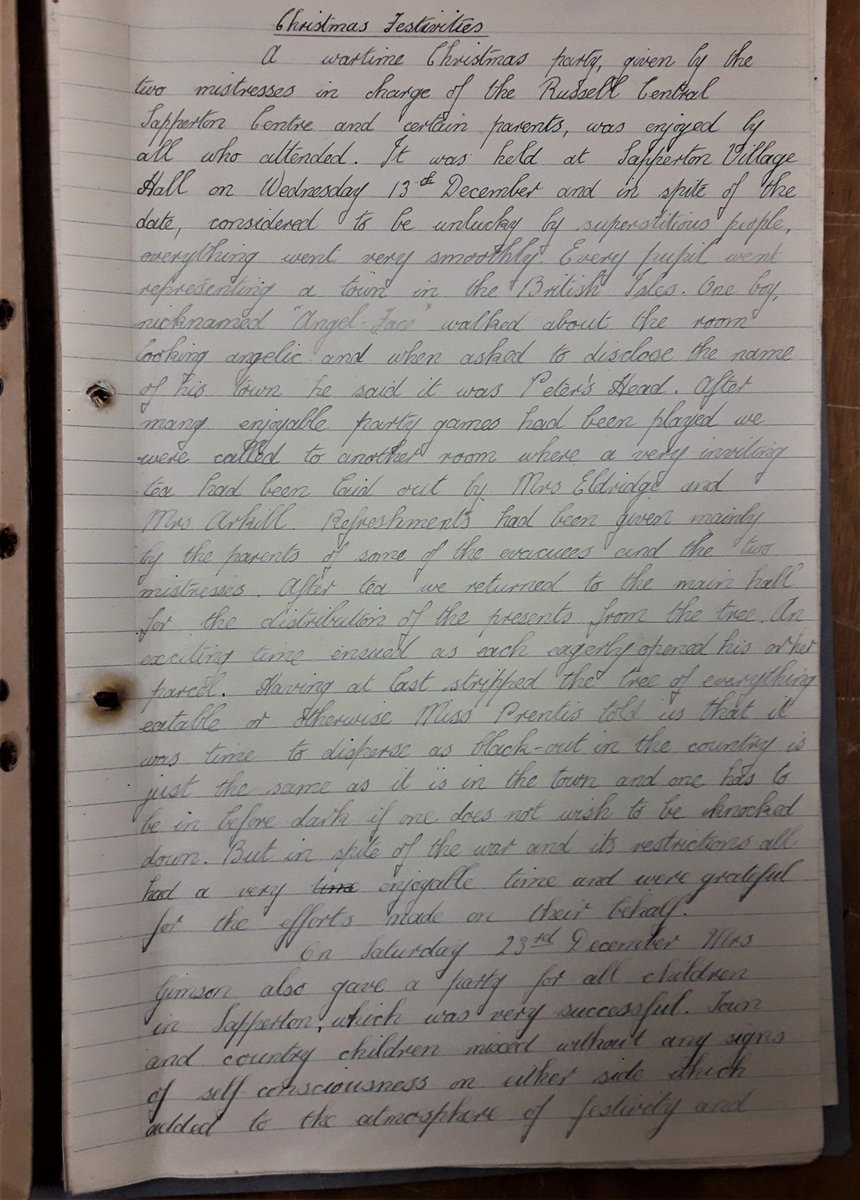 Christmas Festivities
A wartime Christmas party, given by the
two mistresses in charge of the Russell Central
Sapperton Centre and certain parents, was enjoyed by
all who attended. It was held at Sapperton Village
Hall on Wednesday 13th December and in spite of the
date, considered to be unlucky by superstitious people,
everything went very smoothly. Every pupil went
representing a town in the British Isles. One boy,
nicknamed "Angel-Face" walked about the room
looking angelic and when asked to disclose the name
of his town he said it was Peter's Head. After
many enjoyable party games had been played we
were called to another room where a very inviting
tea had been laid out by Mrs Eldridge and
Mrs Arkill Refreshments had been given mainly
by the parents of some of the evacuees and the two
mistresses. After tea we returned to the main hall
for the distribution of the presents from the tree. An
exciting time ensued as each eagerly opened his or her
parcel. Having at last stripped the tree of everything
eatable or otherwise Miss Prentis told us that it
was time to disperse as black-out in the country is
just the same as it is in the town and one has to
be in before dark if one does not wish to be knocked
down. But in spite of the war and its restrictions all
had a very time enjoyable time and were grateful
for the efforts made on their behalf.
On Saturday 23rd December Mrs
Gimson also gave a party for all children
in Sapperton, which was very successful. Town
and country children mixed without any signs
of self consciousness on either side which
added to the atmosphere of festivity and